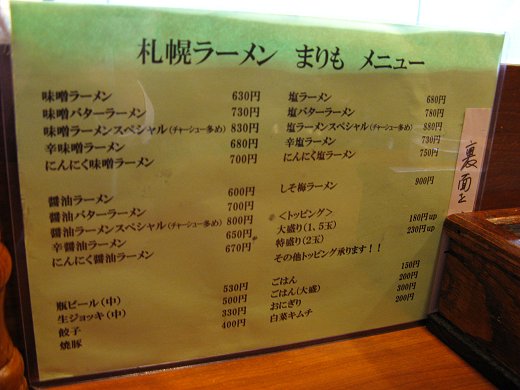 札幌ラーメン まりも メニュー
味噌ラーメン 630円
味噌バターラーメン 730円
味噌ラーメンスペシャル(チャーシュー多め) 830円
辛味噌ラーメン 680円
にんにく味噌ラーメン 700円
醤油ラーメン 600円
醤油バターラーメン 700円
醤油ラーメンスペシャル(チャーシュー多め) 800円
辛醤油ラーメン 650円
にんにく醤油ラーメン 670円
瓶ビール(中) 530円
生ジョッキ(中) 500円
餃子 330円
焼豚 400円
塩ラーメン 680円
塩バターラーメン 780円
塩ラーメンスペシャル(チャーシュー多め) 880円
辛塩ラーメン 730円
にんにく塩ラーメン 750円
しそ梅ラーメン 900円
<トッピング>
大盛り(1,5玉) 180円up
特盛り(2玉) 230円up
その他トッピング承ります!!
ごはん 150円
ごはん(大盛) 200円
おにぎり 300円
白菜キムチ 200円
裏面も